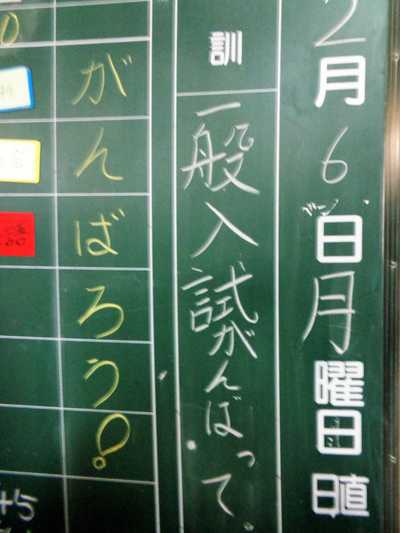 2月6日月曜日 日直
訓 一般入試がんばって。
がんばろう!